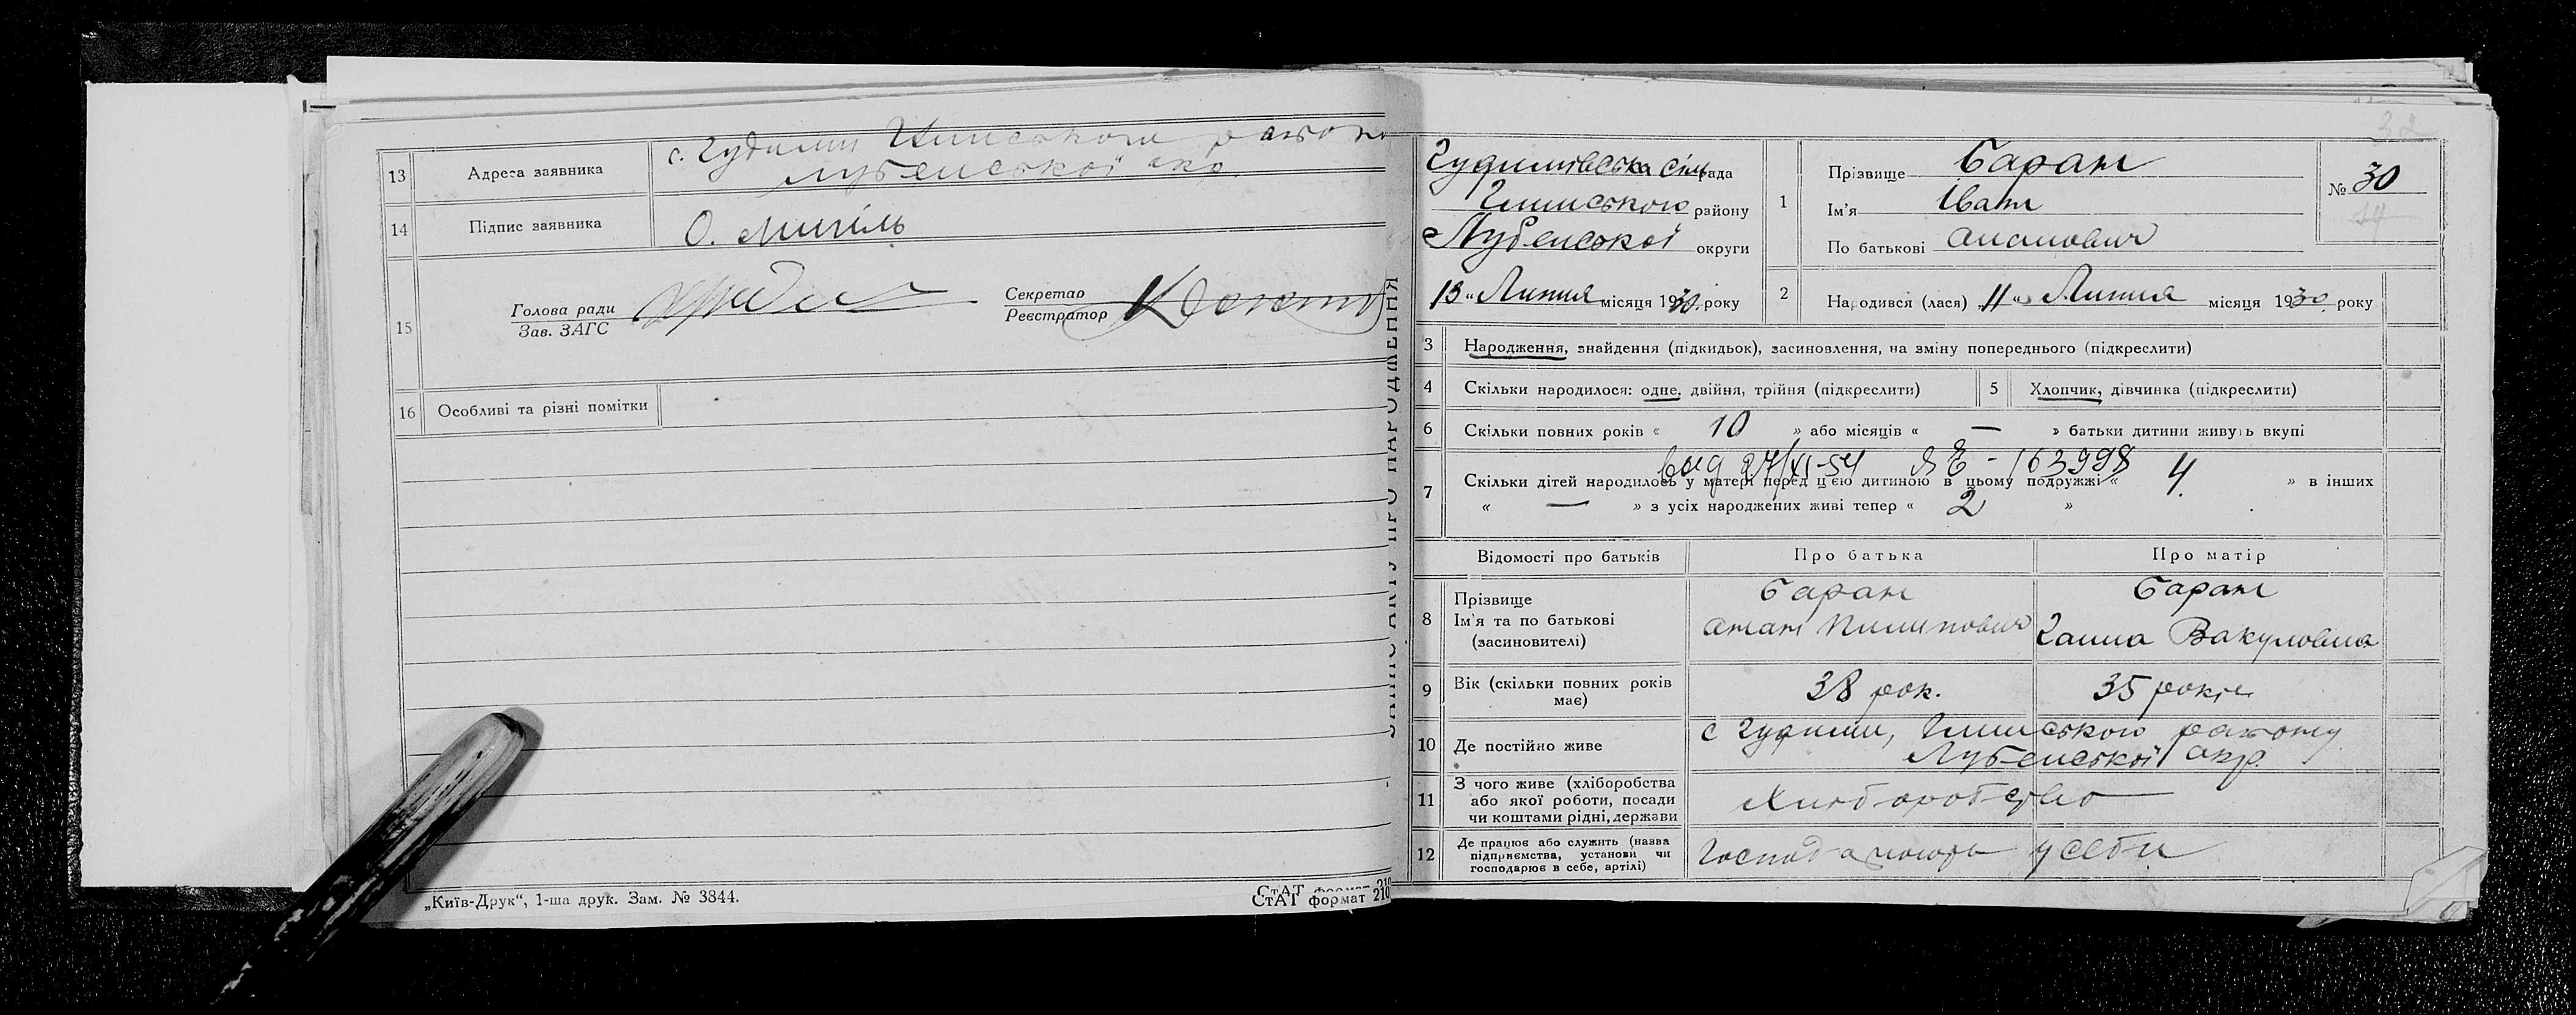 13 Адреса заявника с. Гудими Глинського району
Лубенської окр.
14 Підпис заявника О. Мигіль
15 Голова ради
Зав. ЗАГС
Секретар
Реєстратор
16 Особливі та різні помітки
„Київ-Друк“, 1-ша друк. Зам. № 3844.
СтАТ формат 210
ЗАПИС АКТУ ПРО НАРОДЖЕННЯ
Гудимівська сільрада
Глинського району
Лубенської округи
13 „ Липня місяця 1930. року
1 Прізвище Баран
Ім’я Іван
По батькові Ананович
№ 30
2 Народився (лася) „ 11 “ Липня місяця 1930. року
3 Народження, знайдення (підкидьок), засиновлення, на зміну попереднього (підкреслити)
4 Скільки народилося: одне, двійня, трійня (підкреслити)
5 Хлопчик, дівчинка (підкреслити)
6 Скільки повних років « 10 » або місяців « — » батьки дитини живуть вкупі
вид 27/XI-54 ЯЕ - 163998
7 Скільки дітей народилось у матері перед цією дитиною в цьому подружжі « 4. » в інших
« — » з усіх народжених живі тепер « 2 »
Відомості про батьків Про батька Про матір
8 Прізвище
Ім’я та по батькові
(засиновителі)
Баран
Анан Пилипович
Баран
Ганна Вакуловна
9 Вік (скільки повних років
має)
38 рок. 35 років
10 Де постійно живе с Гудими, Глинського району
Лубенської окр.
11 З чого живе (хліборобства
або якої роботи, посади
чи коштами рідні, держави
Хліборобство
12 Де працює або служить (назва
підприємства, установи чи
господарює в себе, артілі)
Господарюють у себи